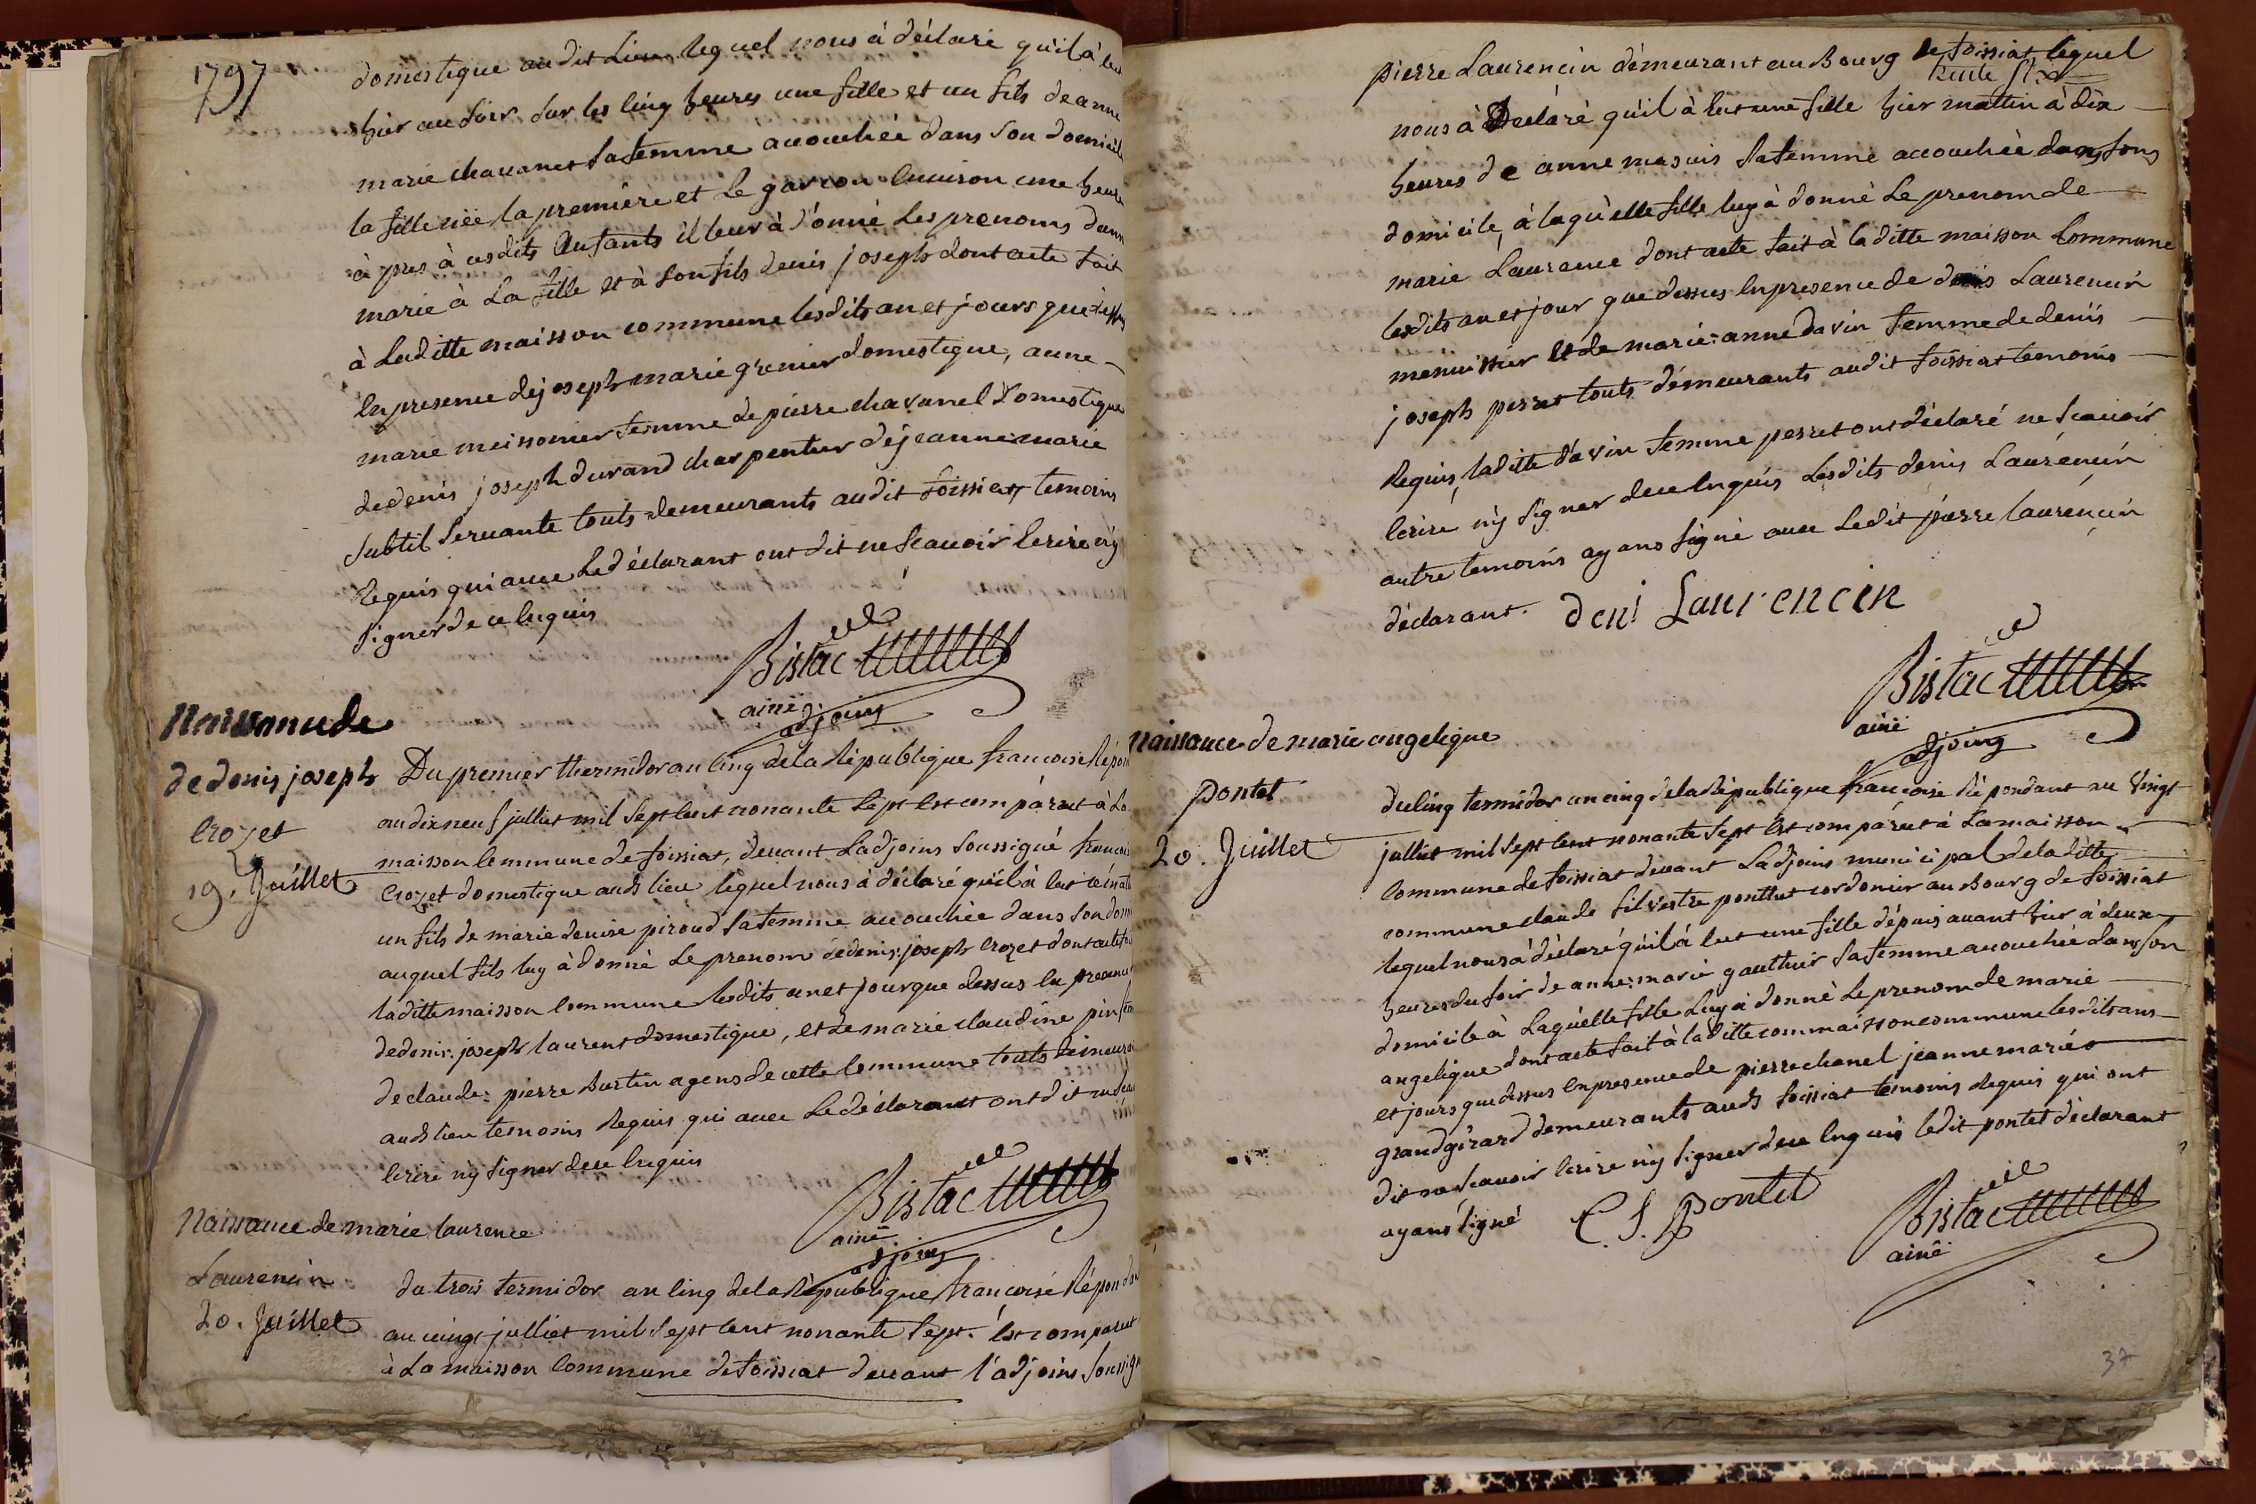 1797
domestique au dit Lieu lequel nous à déclaré qu'il à eut
hier au soir sur les cinq heures une fille et un fils de anne
marie chavanet sa femme accouchée dans son domicile
la fille née la première et le garcon environ une heure
à pres à cesdits Enfants il leur à donné les prenoms danne
marie à La fille et à son fils denis joseph dont acte fait
à Laditte maisson commune lesdits an et jours que dessus
En presence de joseph marie grenier domestique, anne
marie meissonier femme de pierre chavanel Domestique
de denis joseph durand charpentier de jeanne marie
subtil servante touts demeurants au dit foissiat temoins
Requis qui avec Le déclarant ont dit ne scavoir Ecrire n'y
signer de ce Enquis
Bistac
ainé
adjoint
Naissance de
de denis joseph
Crozet
19. Juillet
Du premier thermidor an cinq de la République francoise Répon
au dix neuf julliet mil sept cent nonante sept Est comparut à La
maisson Commune de foissiat, devant L'adjoins soussigné francois
Crozet domestique auds lieu lequel nous à déclaré qu'il à eut ce
un fils de marie denise piroud sa femme accouchée dans son dom
auquel fils luy à donné Le prenom de denis: joseph Crozet dont acte fait
laditte maisson Commune lesdits an et jour que dessus En presence
de denis: joseph laurent domestique, et de marie claudine pin
de claude: pierre Burtin agens de cette Commune touts demeurants
auds lieu temoins Requis qui avec Le déclarant ont dit ne
Ecrire n'y signer de ce Enquis
Bistac
ainé
adjoint
Naissance de marie laurence
Laurencin
20. Juillet
du trois termidor an cinq de la République francoise Répondant
au vingt julliet mil sept cent nonante sept. Est comparut
à La maisson Commune de foissiat devant l'adjoins soussigné
pierre Laurencin démeurant au Bourg de foissiat lequel
nous à Déclaré qu'il à eut une fille hier mattin à dix
heures de anne masuis sa femme accouchée dans son
domicile, à laquelle fille luy à donné Le prenom de
marie Laurance dont acte fait à laditte maisson Commune
lesdits an et jour que dessus En presence de denis Laurencin
menuissier et de marie: anne davin femme de denis
joseph perret touts démeurants audit foissiat temoins
Requis, laditte davin femme perret ont déclaré ne scavoir
Ecrire n'y signer de ce Enquis Lesdits denis Laurencin
autre temoins ayans signé avec Ledit pierre laurencin
déclarant. deni Laurencin
Bistac
ainé
adjoint
Naissance de marie angelique
pontet
20. Juillet
du cinq termidor an cinq de la République francoise Répondant au vingt
julliet mil sept cent nonante sept Est comparut à La maisson
Commune de foissiat devant L'adjoins municipal de laditte
commune claude silvestre ponthet cordonier au Bourg de foissiat
lequel nous à déclaré qu'il à eut une fille dépuis avant hier à deux
heures du soir de anne: marie gauthier sa femme accouchée dans son
domicile à Laquelle fille Luy à donné Le prenom de marie
angelique dont acte fait à laditte commaisson commune lesdits ans
et jours que dessus En presence de pierre chanel jeanne marie
grandgirard demeurants auds foissiat témoins Requis qui ont
dit ne scavoir Ecrire n'y signer de ce Enquis ledit pontet déclarant
ayans signé C. S. Pontet
Bistac
ainé
37